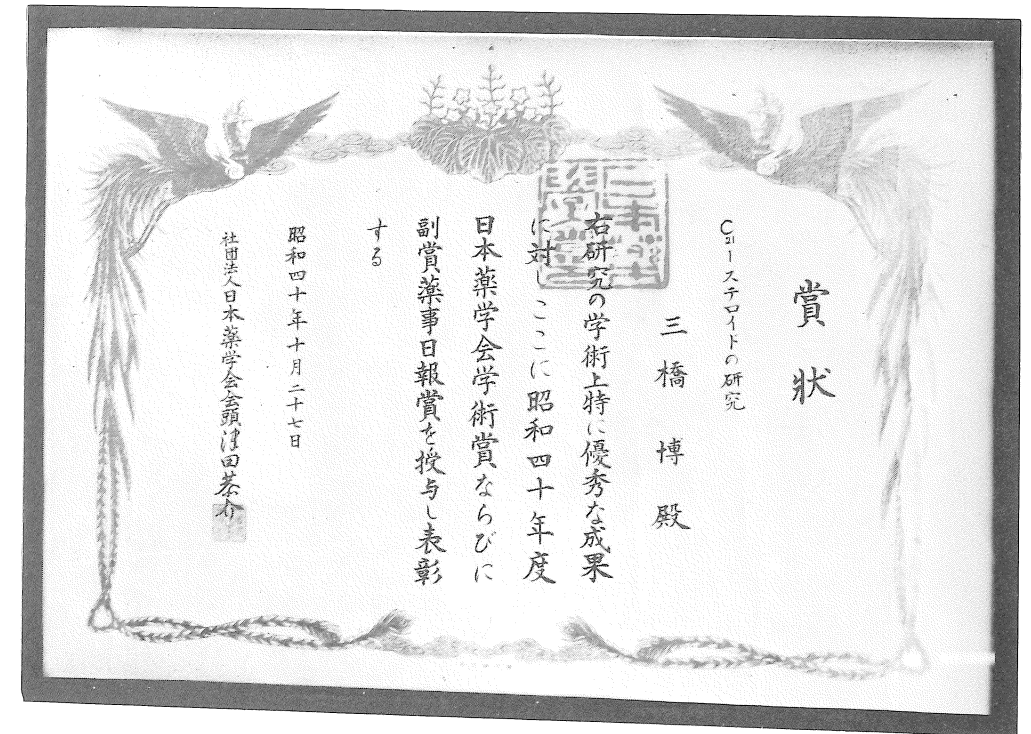 賞状
C₂₁ーステロイドの研究
三橋博殿
右研究の学術上特に優秀な成果
に対しここに昭和四十年度
日本薬学会学術賞ならびに
副賞薬事日報賞を授与し表彰
する
昭和四十年十月二十七日
社団法人日本薬学会会頭津田恭介